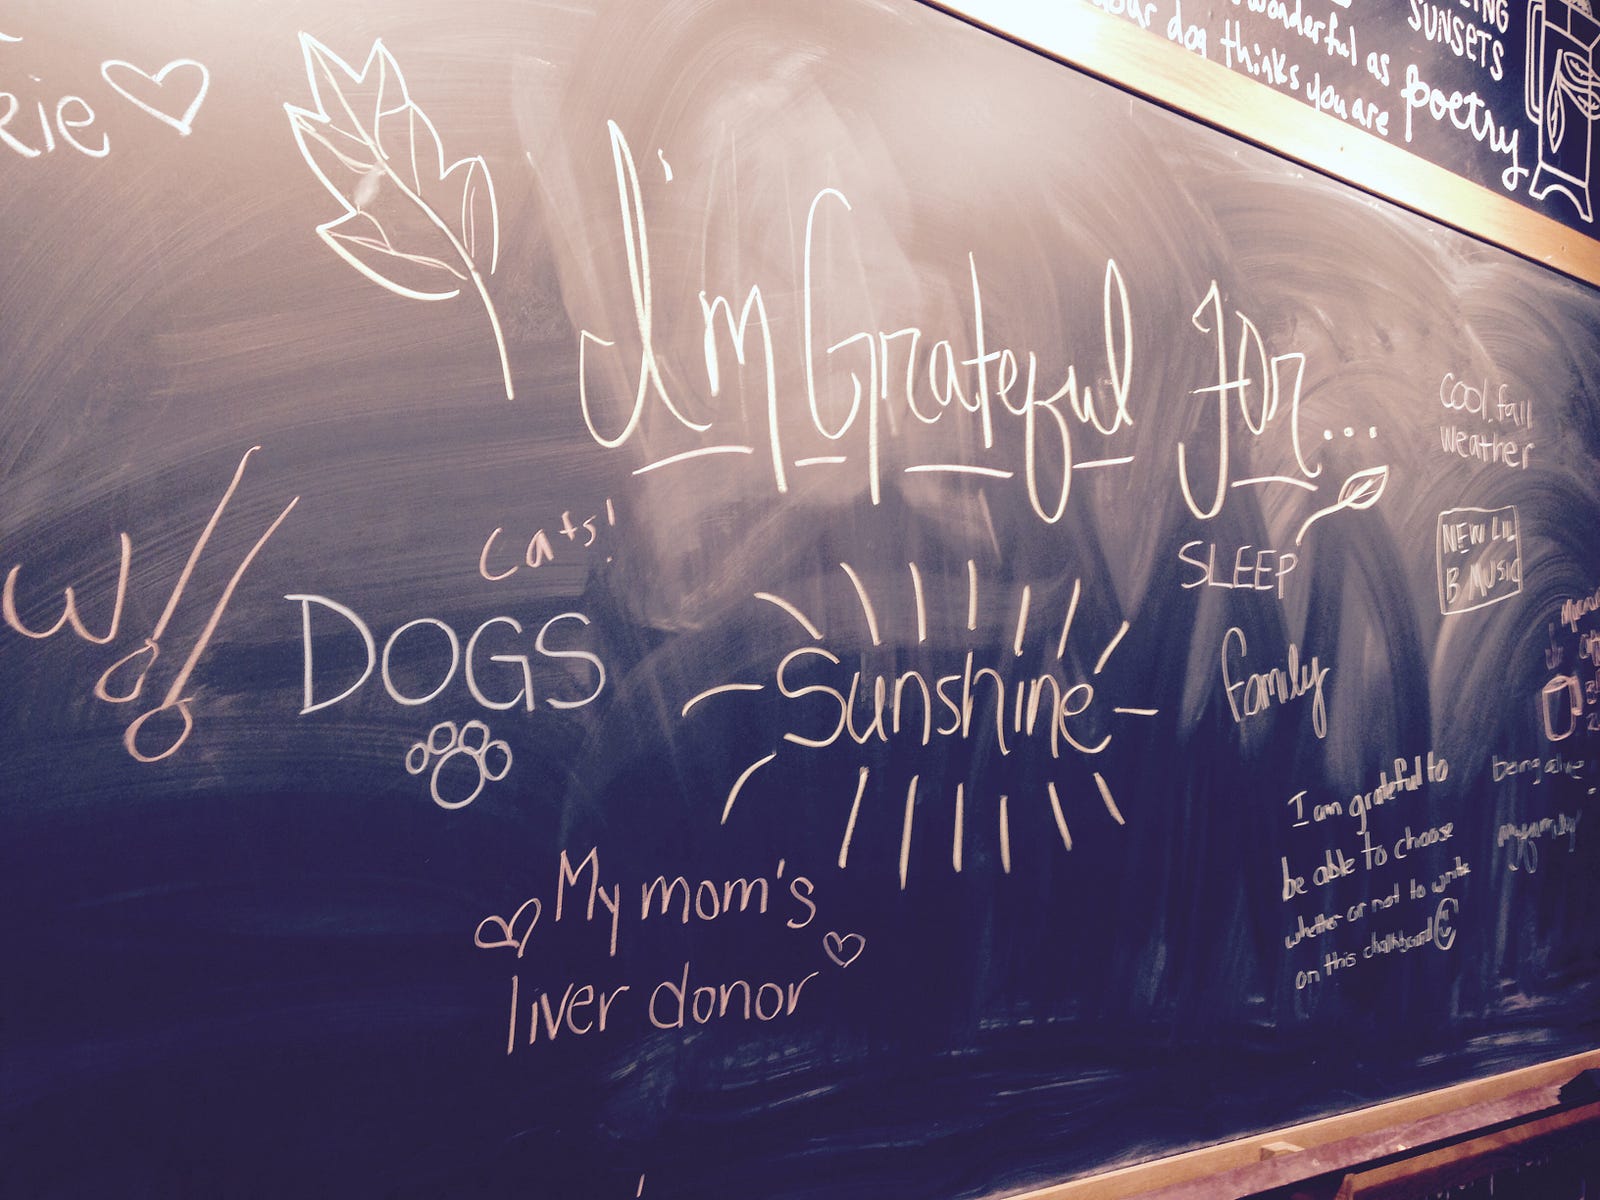 SUNSETS
wonderful as
your dog thinks you are
poetry
I'm Grateful For...
cool fall
weather
Cats!
SLEEP
NEW LIL
B MUSIC
w/
DOGS
Sunshine
family
My mom's
liver donor
I am grateful to
be able to choose
whether or not to write
on this chalkboard
being alive
my family